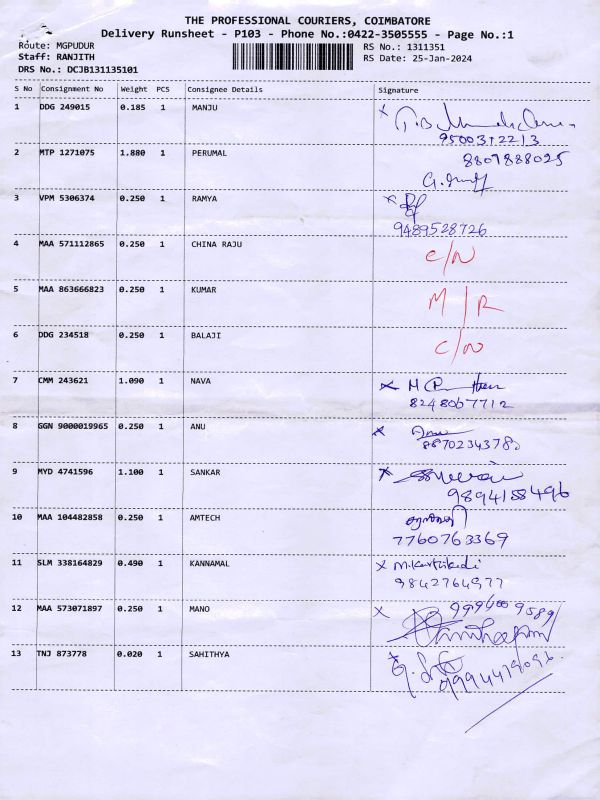 THE PROFESSIONAL COURIERS, COIMBATORE
Delivery Runsheet - P103 - Phone No.:0422-3505555 - Page No.:1
Route: MGPUDUR RS No.: 1311351
Staff: RANJITH RS Date: 25-Jan-2024
DRS No.: DCJB131135101
S No Consignment No Weight PCS Consignee Details Signature
1 DDG 249015 0.185 1 MANJU
9500312213
2 MTP 1271075 1.880 1 PERUMAL 8807888025
3 VPM 5306374 0.250 1 RAMYA
9489528726
4 MAA 571112865 0.250 1 CHINA RAJU C/N
5 MAA 863666823 0.250 1 KUMAR M/R
6 DDG 234518 0.250 1 BALAJI C/N
7 CMM 243621 1.090 1 NAVA
8248067712
8 GGN 9000019965 0.250 1 ANU
8870234378
9 MYD 4741596 1.100 1 SANKAR
9894188496
10 MAA 104482858 0.250 1 AMTECH
7760763369
11 SLM 338164829 0.490 1 KANNAMAL
9842764977
12 MAA 573071897 0.250 1 MANO
13 TNJ 873778 0.020 1 SAHITHYA